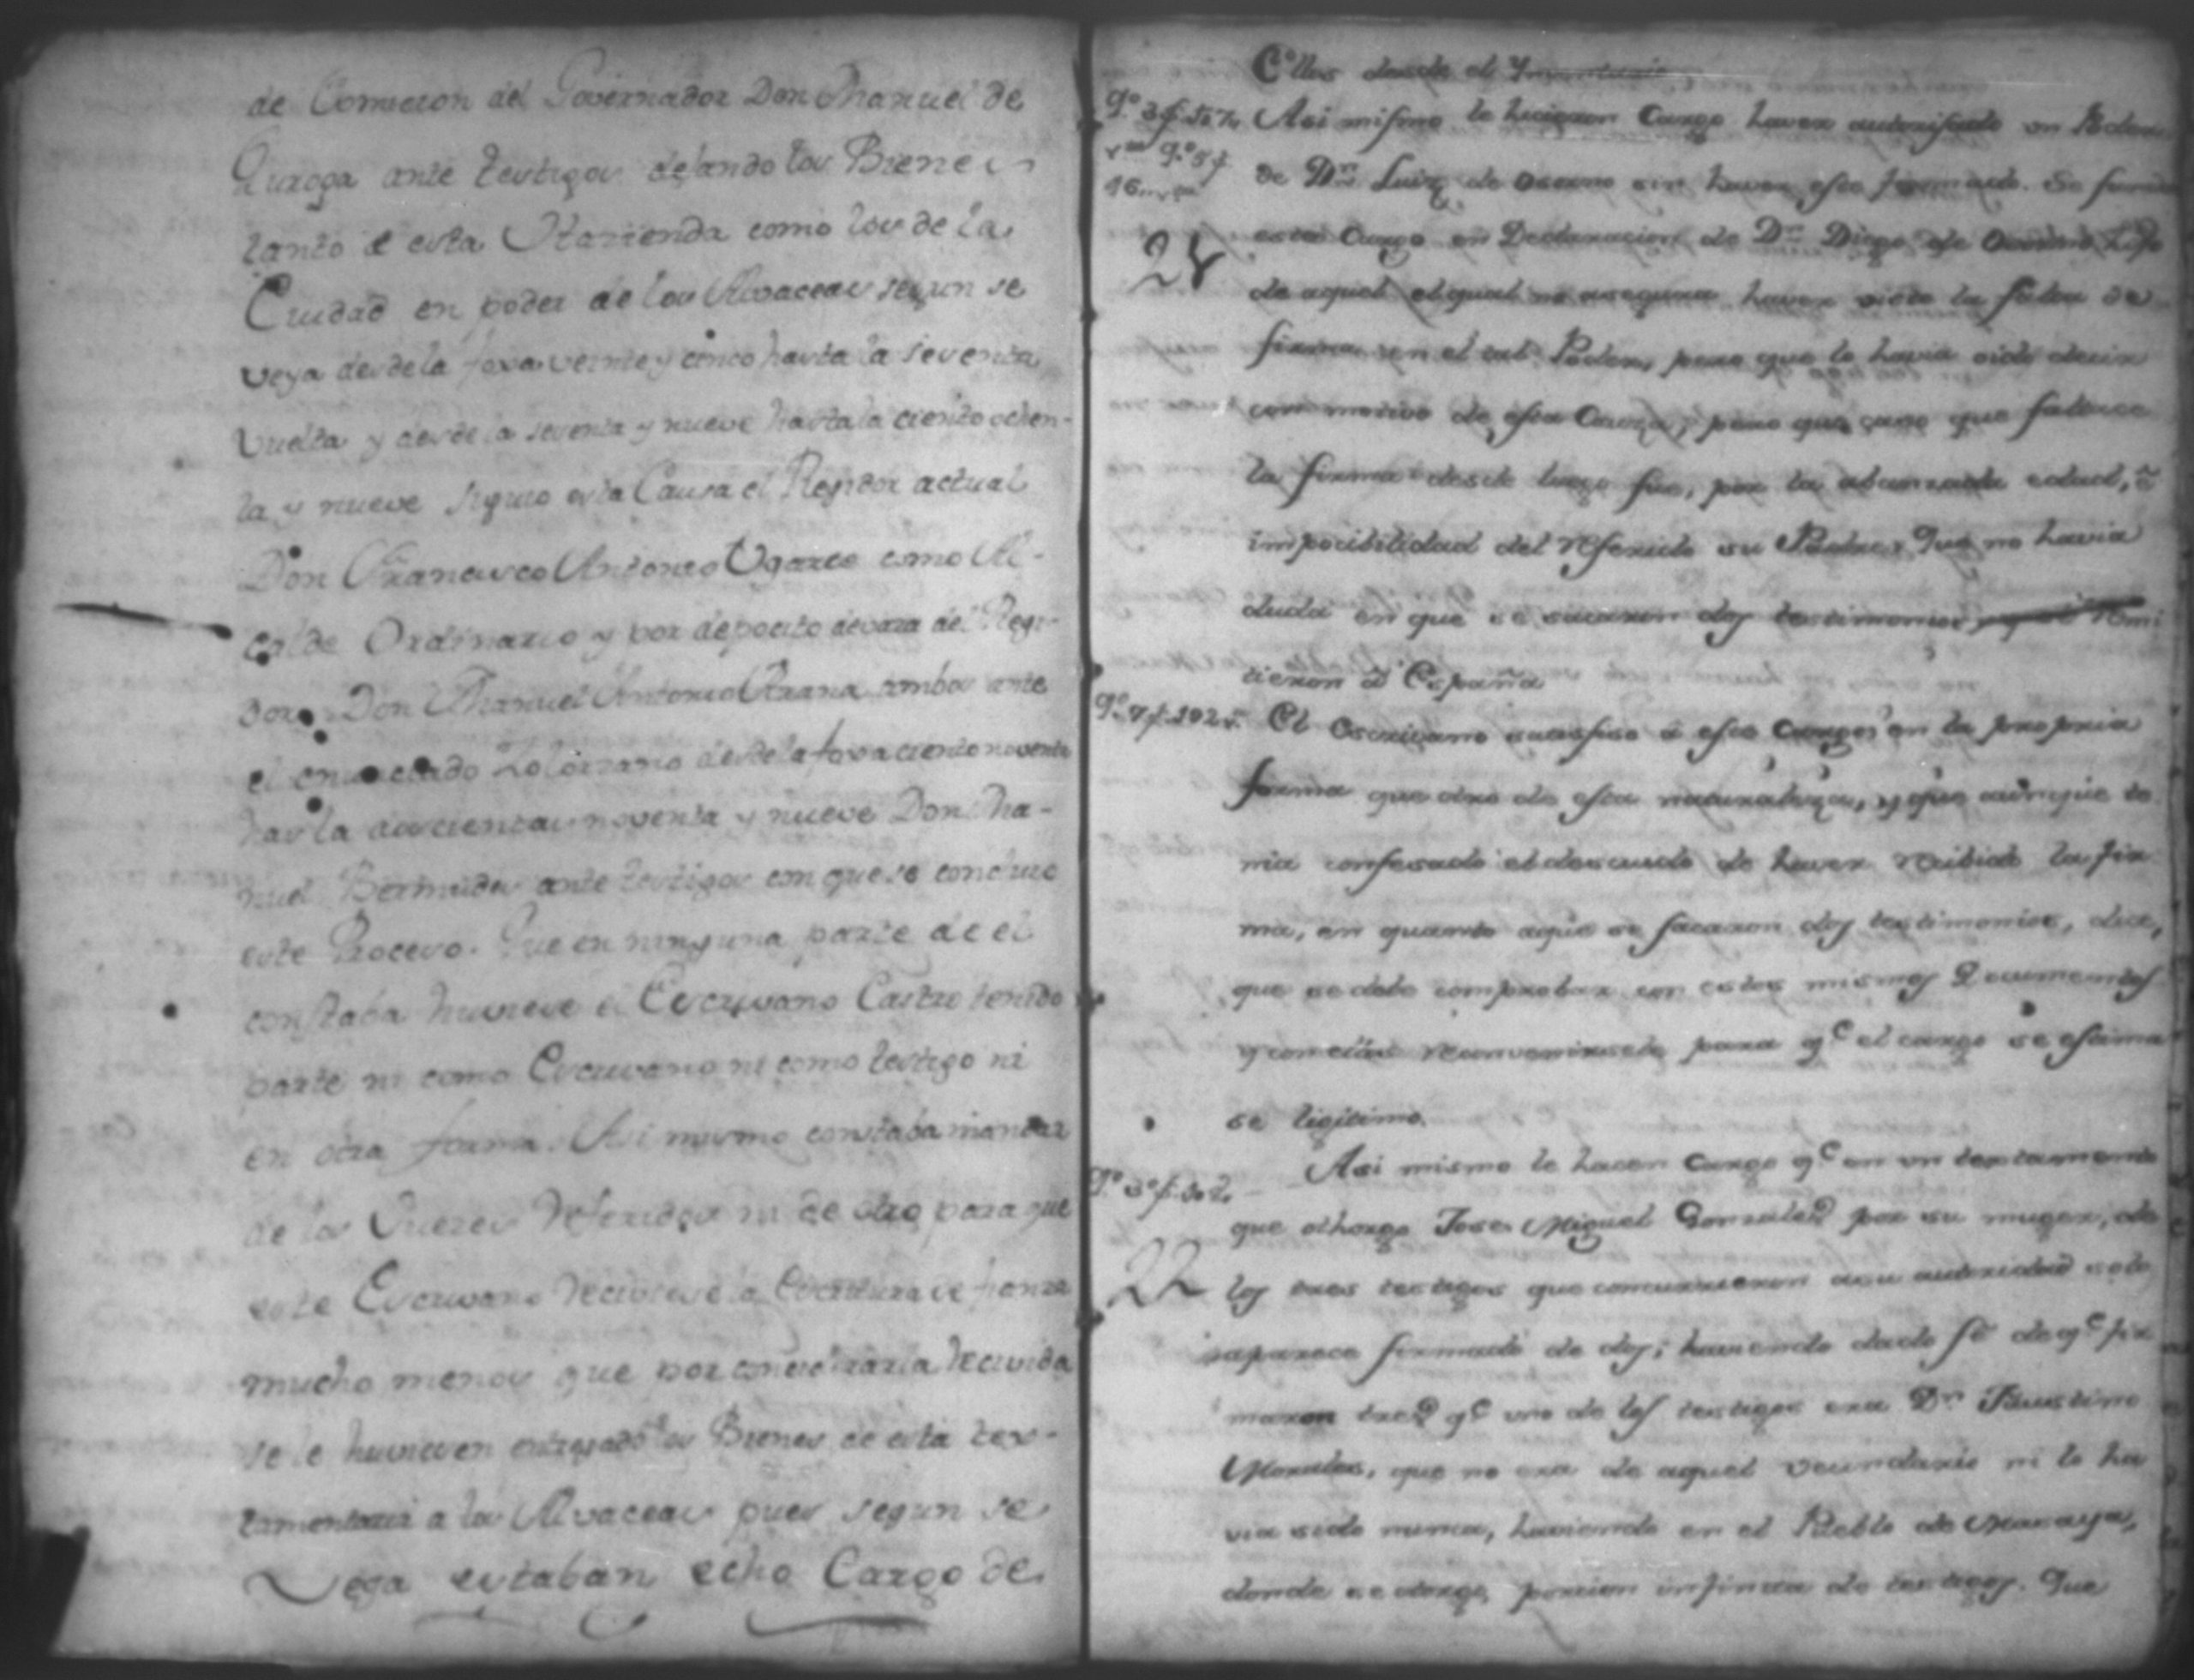 de Comicion del Governador Don Manuel de
Quiroga ante testigos dejando los Bienes
tanto de esta Hazienda como los de la
Ciudad en poder de los Alvaceas segun se
veya desde la foxa veinte y cinco hasta la setenta
vuelta y desde la setenta y nueve hasta la ciento ochen-
ta y nueve siguio esta Causa el Regidor actual
Don Francisco Antonio Ugarte como Al-
calde Ordinario y por deposito de vara del Regi-
dor Don Manuel Antonio Arana ambos ante
el enunciado Zolorzano desde la foxa ciento noventa
hasta doscientas noventa y nueve Don Ma-
nuel Bermudes ante testigos con que se concluio
este Proceso. Que en ninguna parte de el
constaba huviese el Escrivano Castro tenido
parte ni como Escrivano ni como testigo ni
en otra forma. Asi mismo constaba mandar
de los Jueces referidos ni de otro para que
este Escrivano reciviese la Escritura de fianza
mucho menos que por concideraria recivida
se le huviesen entregado los Bienes de esta tes-
tamentaria a los Alvaceas pues segun se
Veya estaban echo Cargo de
Ellos desde el Ymbentario
Q.º 3 f. 167
Asi mismo le hicieron Cargo haver autorisado un Poder
Q.º 5 f
16
de Dn. Luiz de Osorno sin haver este firmado. Se funda
28
este Cargo en Declaracion de Dn. Diego de Osorno hijo
de aquel el qual no asegura haver visto la falta de
firma en el tal Poder, pero que lo havia oido decir
con motivo de esta Causa, pero que caso que faltase
la firma desde luego fue, por la abanzada edad, è
impocibilidad del referido su Padre: Que no havia
duda en que se sacaron dos testimonios y que se remi
tieron à España
Q.º 7 f. 102 v.
El Escrivano satisfiso à este Cargo en la propria
forma que otro de esta naturaleza, y que aunque te
nia confesado el descuido de haver recibido la fir
ma, en quanto aque se sacaron dos testimonios, dice,
que se debe comprobar con estos mismos Documentos
y con ellos reconvenirsele para qe el cargo se estima
se ligitimo.
Q.º 3º f. 30
Asi mismo le hacen Cargo qe en un testamento
que othorgo Jose Miguel Gonzales por su muger, de
22
los tres testigos que concurrieron a su autoridad solo
aparece firmado de dos; haviendo dado fè de qe fir
maron tres qe uno de los testigos era Dn Faustino
Morales, que no era de aquel vecindario ni lo ha
via sido nunca, haviendo en el Pueblo de Maraya,
donde se otorgo, porcion infinita de testigos. Que